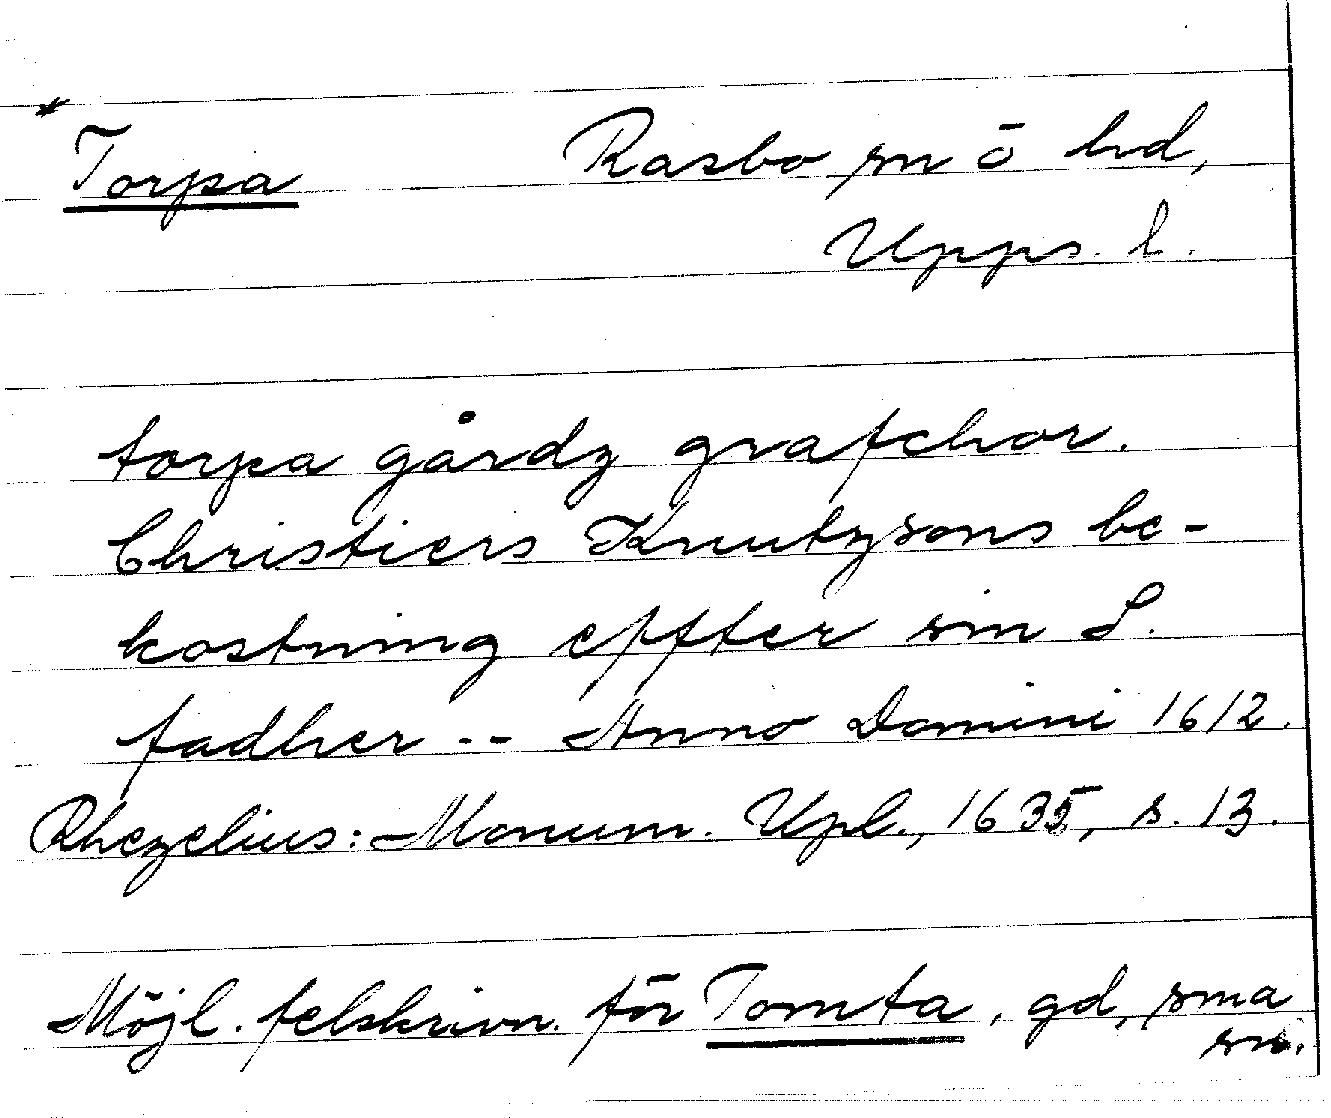 * Torpa Rasbo sn o hd,
Upps. l.
torpa gårdz grafchor.
Christiers Knutzsons be-
kostning effter sin S.
fadher -- Anno Domini 1612.
Rhezelius: Monum. Upl., 1635, s. 13.
Möjl. felskrivn. för Tomta, gd, sma
sn.